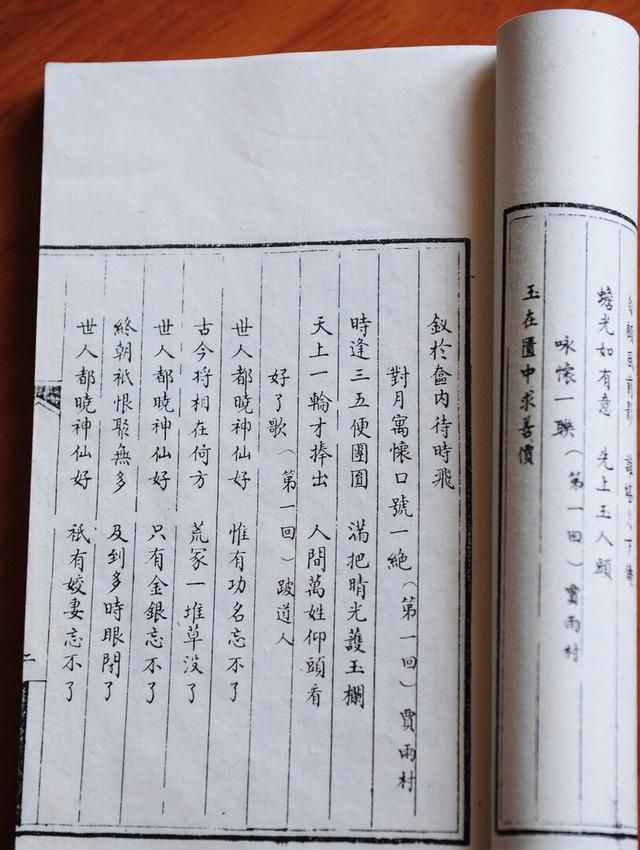 蟾光如有意　先上玉人頭
咏懷一联（第一回）賈雨村
玉在匱中求善價
釵於奩內待時飛
對月寓懷口號一絕（第一回）賈雨村
時逢三五便團圓　滿把晴光護玉欄
天上一輪才捧出　人間萬姓仰頭看
好了歌（第一回）跛道人
世人都曉神仙好　惟有功名忘不了
古今将相在何方　荒冢一堆草没了
世人都曉神仙好　只有金銀忘不了
終朝祇恨聚無多　及到多時眼閉了
世人都曉神仙好　祇有姣妻忘不了
二